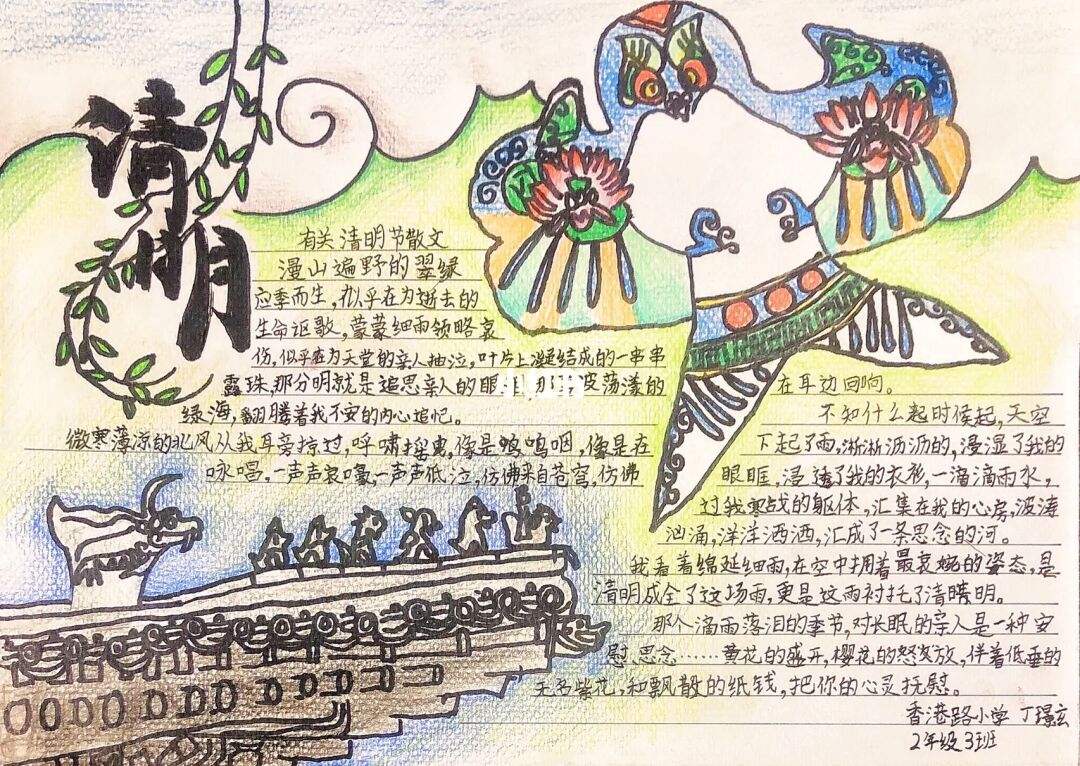 清明
有关清明节散文
漫山遍野的翠绿
应季而生,似乎在为逝去的
生命讴歌,蒙蒙细雨领略哀
伤,似乎在为天堂的亲人抽泣,叶片上凝结成的一串串
露珠,那分明就是追思亲人的眼 那 波荡漾的
绿海,翻腾着我不安的内心追忆。
微寒薄凉的北风从我耳旁掠过,呼啸摇曳,像是呜呜咽,像是在
咏唱,一声声哀嚎,一声声低泣,仿佛来自苍穹,仿佛
在耳边回响。
不知什么起时候起,天空
下起了雨,淅淅沥沥的,漫湿了我的
眼眶,浸透了我的衣衫,一滴滴雨水,
过我寒战的躯体,汇集在我的心房,波涛
汹涌,洋洋洒洒,汇成了一条思念的河。
我看着绵延细雨,在空中拥着最哀婉的姿态,是
清明成全了这场雨,更是这雨衬托了清晴明。
那个滴雨落泪的季节,对长眠的亲人是一种安
慰,思念……黄花的盛开,樱花的怒放,伴着低垂的
无名紫花,和飘散的纸钱,把你的心灵抚慰。
香港路小学 丁璟玄
2年级3班